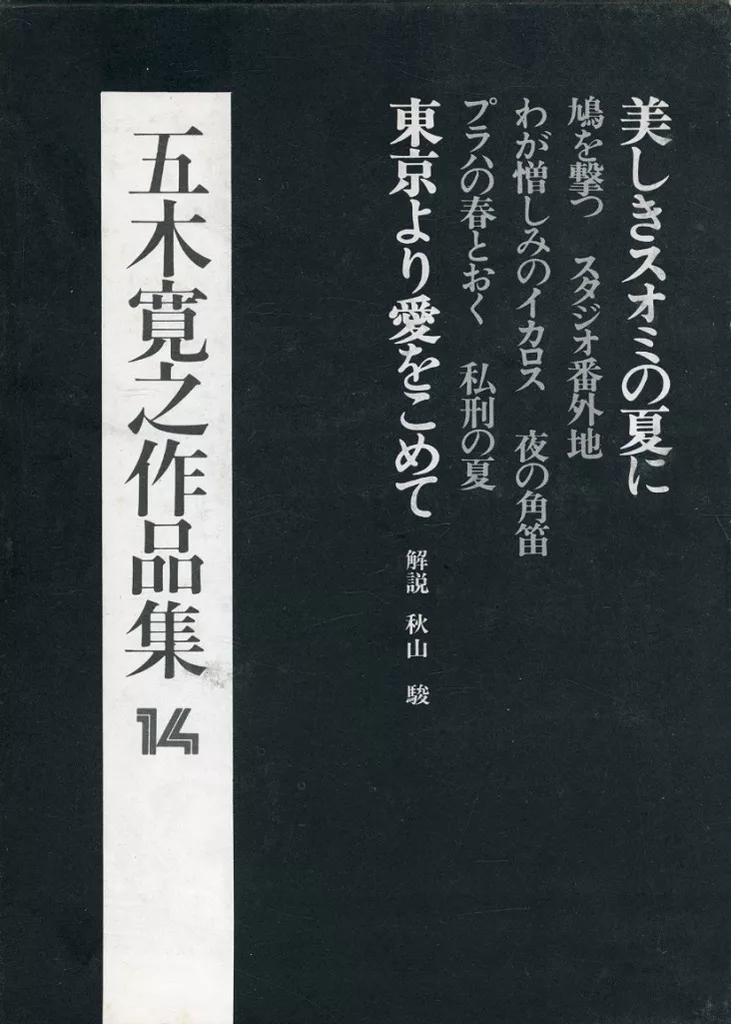 美しきスオミの夏に
鳩を撃つ　スタジオ番外地
わが憎しみのイカロス　夜の角笛
プラハの春とおく　私刑の夏
東京より愛をこめて　解説　秋山　駿
五木寛之作品集 14